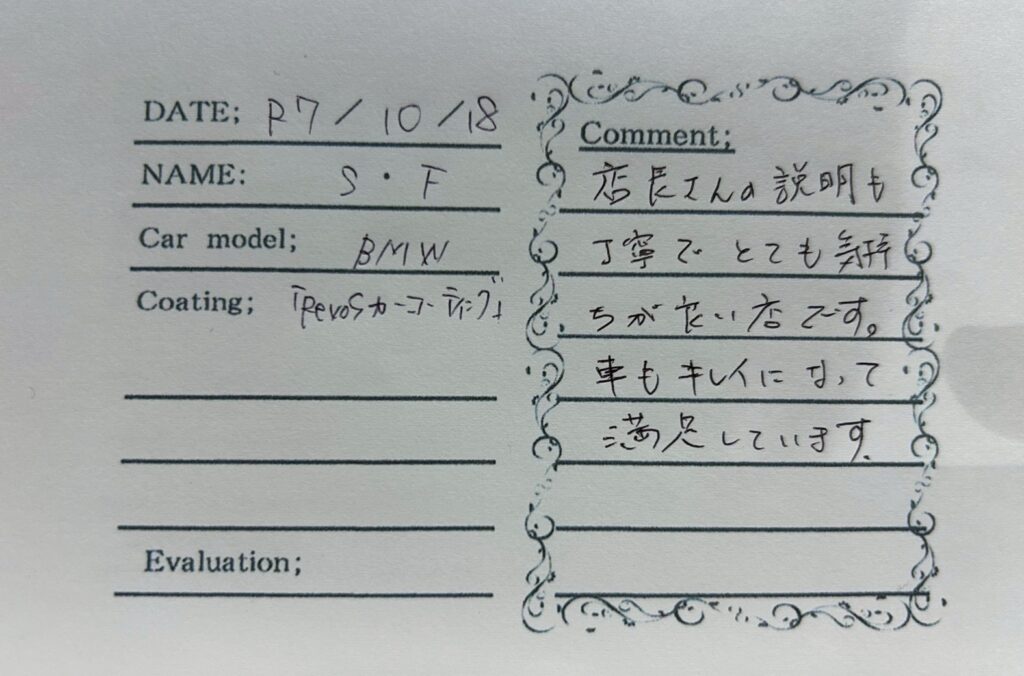 DATE; R7/10/18
NAME: S・F
Car model; BMW
Coating; 「Revosカーコーティング」
Evaluation;
Comment;
店長さんの説明も
丁寧で とても 気持
ちが良い店です。
車もキレイになって
満足しています。